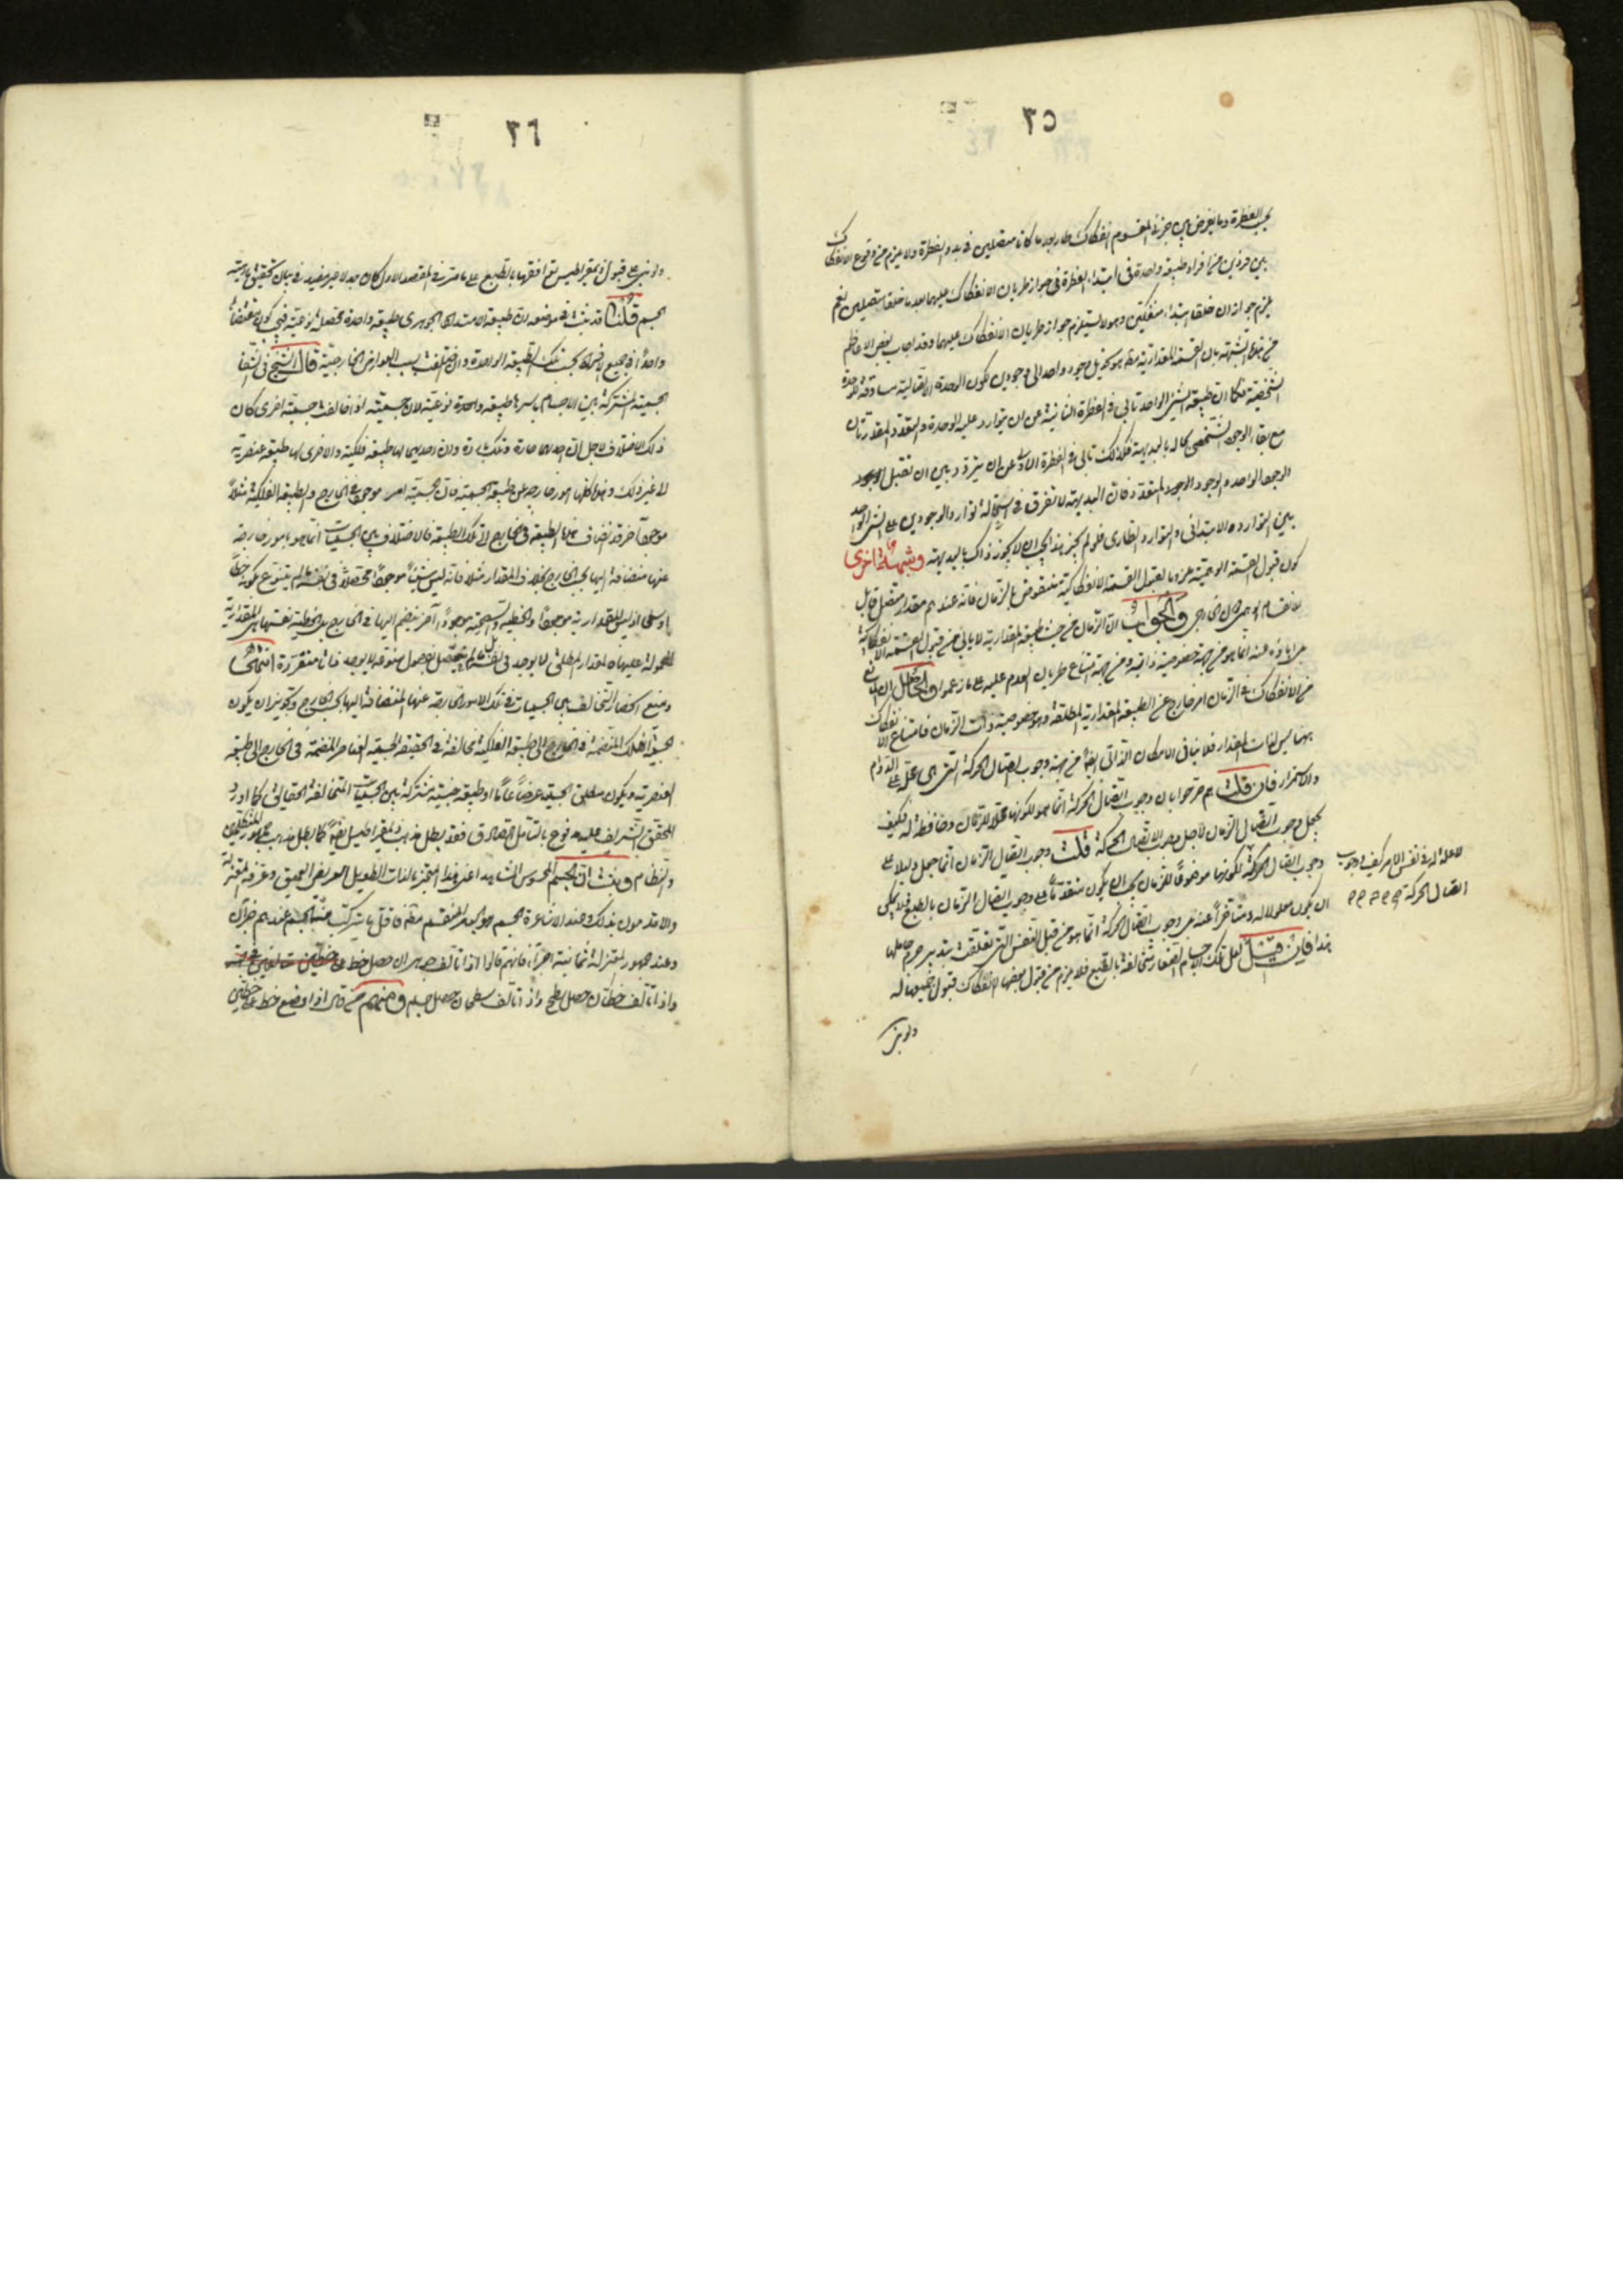 ٢٥
بحسب الفطرة وما يعرض بين جزئي المقسوم انفكاك طار بعد ما كانا متصلين في بدو الفطرة ولا يلزم من وقوع الانفكاك
بين فردين من افراد طبيعة واحدة في ابتداء الفطرة في جواز طريان الانفكاك عليهما بعد ما خلقا متصلين نعم
يلزم جواز ان خلقا ابتداء منفكين وهو لا يستلزم جواز طريان الانفكاك عليهما وقد اجاب بعض الاعاظم
من هذه الشبهة بان القسمة المقدارية مطلقا هو تحويل وجود واحد الى وجودين لكون الوحدة الاتصالية مساوقة للوحدة
الشخصية فكما ان طبيعة الشيء الواحد تابى في الفطرة الثانية عن ان يتوارد عليه الوحدة والتعدد المقداريتان
مع بقاء الوجود الشخصي بحاله بالبديهة فكذلك تابى في الفطرة الاولى عن ان يتردد بين ان تقبل الوجود
الوجود الواحد والوجود المتعدد فان البديهة لا تفرق في استحالة توارد الوجودين على الشيء الواحد
بين التوارد الابتدائي والتوارد الطاري فلو لم يجز هذا يجب ان لا يجوز ذاك بالبديهة وشبهة اخرى
كون قبول القسمة الوهمية ملزوما لقبول القسمة الانفكاكية منقوض بالزمان فانه عندهم مقدار متصل قابل
للانقسام الوهمي لا الخارجي والجواب ان الزمان من حيث طبيعة المقدارية لا يابى من قبول القسمة الانفكاكية
بل اباؤه عنه انما هو من جهة خصوصية ذاتية ومن جهة امتناع طريان العدم عليه على ما زعموا والحاصل ان المانع
من الانفكاك في الزمان امر خارج عن الطبيعة المقدارية المطلقة وهو خصوصية ذات الزمان فامتناع الانفكاك
بهما ليس لذات المقدار فلا ينافي الامكان الذاتي ايضا من جهة وجوب اتصال الحركة التي هي محله على الدوام
والاستمرار فان قلت هم صرحوا بان وجوب اتصال الحركة انما هو لكونها محلا للزمان وحافظة له فكيف
يجعل وجوب اتصال الزمان لاجل وجوب اتصال الحركة قلت وجوب اتصال الزمان انما جعل دليلا على
وجوب اتصال الحركة لكونها موضوعا للزمان يجب ان يكون متقدما على وجوب اتصال الزمان بالطبع فلا يمكن
ان يكون معلولا له ومتاخرا عنه بل وجوب اتصال الحركة انما هو من قبل النفس التي تعلقت بتدبير جرم حاملها
هذا فان قيل لعل تلك الاجسام الصغار متخالفة بالطبع فلا يلزم من قبول بعضها الانفكاك قبول جميعها له
ولو بنى
لا علة له في نفس الامر كيف ووجوب
اتصال الحركة
٢٦
ولو بنى على قبول ذيمقراطيس بتوافقها بالطبع على ما مر في المقصد الاول كان جدلا غير مفيد في بيان تحقيق ماهية
الجسم قلنا قد ثبت في موضعه ان طبيعة الامتداد الجوهري طبيعة واحدة محصلة نوعية فيكون مقتضاها
واحدا في جميع الافراد بحسب تلك الطبيعة الواحدة وان اختلفت بسبب العوارض الخارجية قال الشيخ في الشفا
الجسمية المشتركة بين الاجسام باسرها طبيعة واحدة نوعية لان جسمية اذا خالفت جسمية اخرى كان
ذلك الاختلاف لاجل ان احديهما حارة وتلك باردة وان احديهما لها طبيعة فلكية والاخرى لها طبيعة عنصرية
الى غير ذلك وهذه كلها امور خارجة عن طبيعة الجسمية فان الجسمية امر موجود في الخارج والطبيعة الفلكية مثلا
موجود آخر قد انضاف هذه الطبيعة في الخارج الى تلك الطبيعة فالاختلاف بين الجسميات انما هو بامور خارجة
عنها منضافة اليها بحسب الخارج بخلاف المقدار مثلا فانه ليس شيئا موجودا محصلا في نفسه ما لم يتنوع بكونه خطا
او سطحا اذ ليس المقدارية موجودا والخطية والسطحية موجودا آخر ينضم اليها في الخارج بل الخطية نفسها هي المقدارية
المحمولة عليها فالمقدار المطلق لا يوجد في نفسه ما لم يتحصل بفصول منوعة لا يوجد ذاتا متقررة انتهى
ومنع انحصار التخالف بين الجسميات في تلك الامور الخارجة عنها المنضافة اليها بحسب الخارج وتجويز ان يكون
جسمية الفلك المنضمة في الخارج الى طبيعة الفلكية مخالفة في الحقيقة لجسمية العناصر المنضمة في الخارج الى طبيعة
العنصرية ويكون مطلق الجسمية عرضا عاما او طبيعة جنسية مشتركة بين الجسميات المتخالفة الحقائق كما اورد
المحقق الشريف عليه مدفوع بالتامل الصادق فقد بطل مذهب ذيمقراطيس ايضا كما بطل مذهب جمهور المتكلمين
والنظام وثبت ان الجسم المحسوس المشاهد اعني هذا المتحيز بالذات الطويل العريض العميق وعرفه المعتزلة
والاقدمون بذلك وعند الاشاعرة الجسم هو المتحيز المنقسم مطلقا فاقل ما يتركب منه الجسم عندهم جزآن
وعند جمهور المعتزلة ثمانية اجزاء فانهم قالوا اذا تالف جوهران حصل خط
واذا تالف خطان حصل سطح واذا تالف سطحان حصل جسم ومنهم من قال اذا وضع خط على خطين